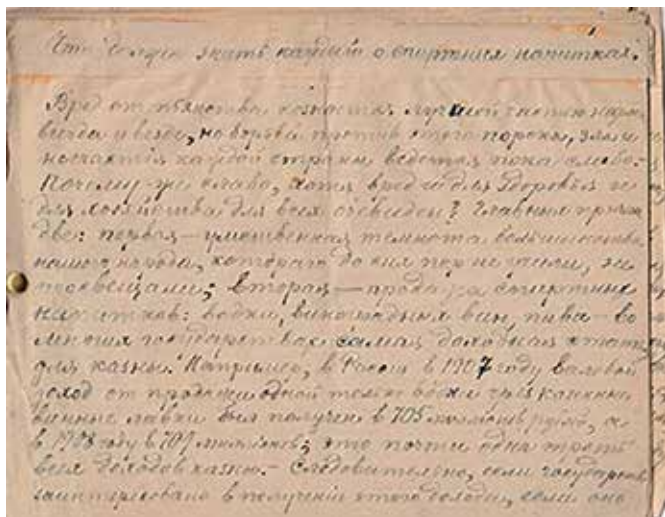 Что долженъ знать каждый о спиртныхъ напиткахъ.
Вредъ отъ пьянства сознается лучшей частью
всегда и везде, но борьба противъ этого порока, зла и
несчастія каждой страны ведется пока слабо.-
Почему-же слабо, хотя вредъ и для здоровья и
для хозяйства для всехъ очевиденъ? Главныя причины
две: первая — умственная темнота большинства
нашего народа, котораго до сихъ поръ не учили, не
просвещали; вторая — продажа спиртныхъ
напитковъ: водки, виноградныхъ винъ, пива - во
многихъ государствахъ самая доходная статья
для казны. Напримеръ, в Россіи в 1907 году валовой
доходъ отъ продажи одной только водки чрезъ казенныя
винныя лавки былъ полученъ в 705 милліоновъ рублей, а
в 1908 году в 709 милліоновъ; это почти одна треть
всехъ доходовъ казны.- Следовательно, если государство
заинтересовано в полученіи этого дохода, если оно